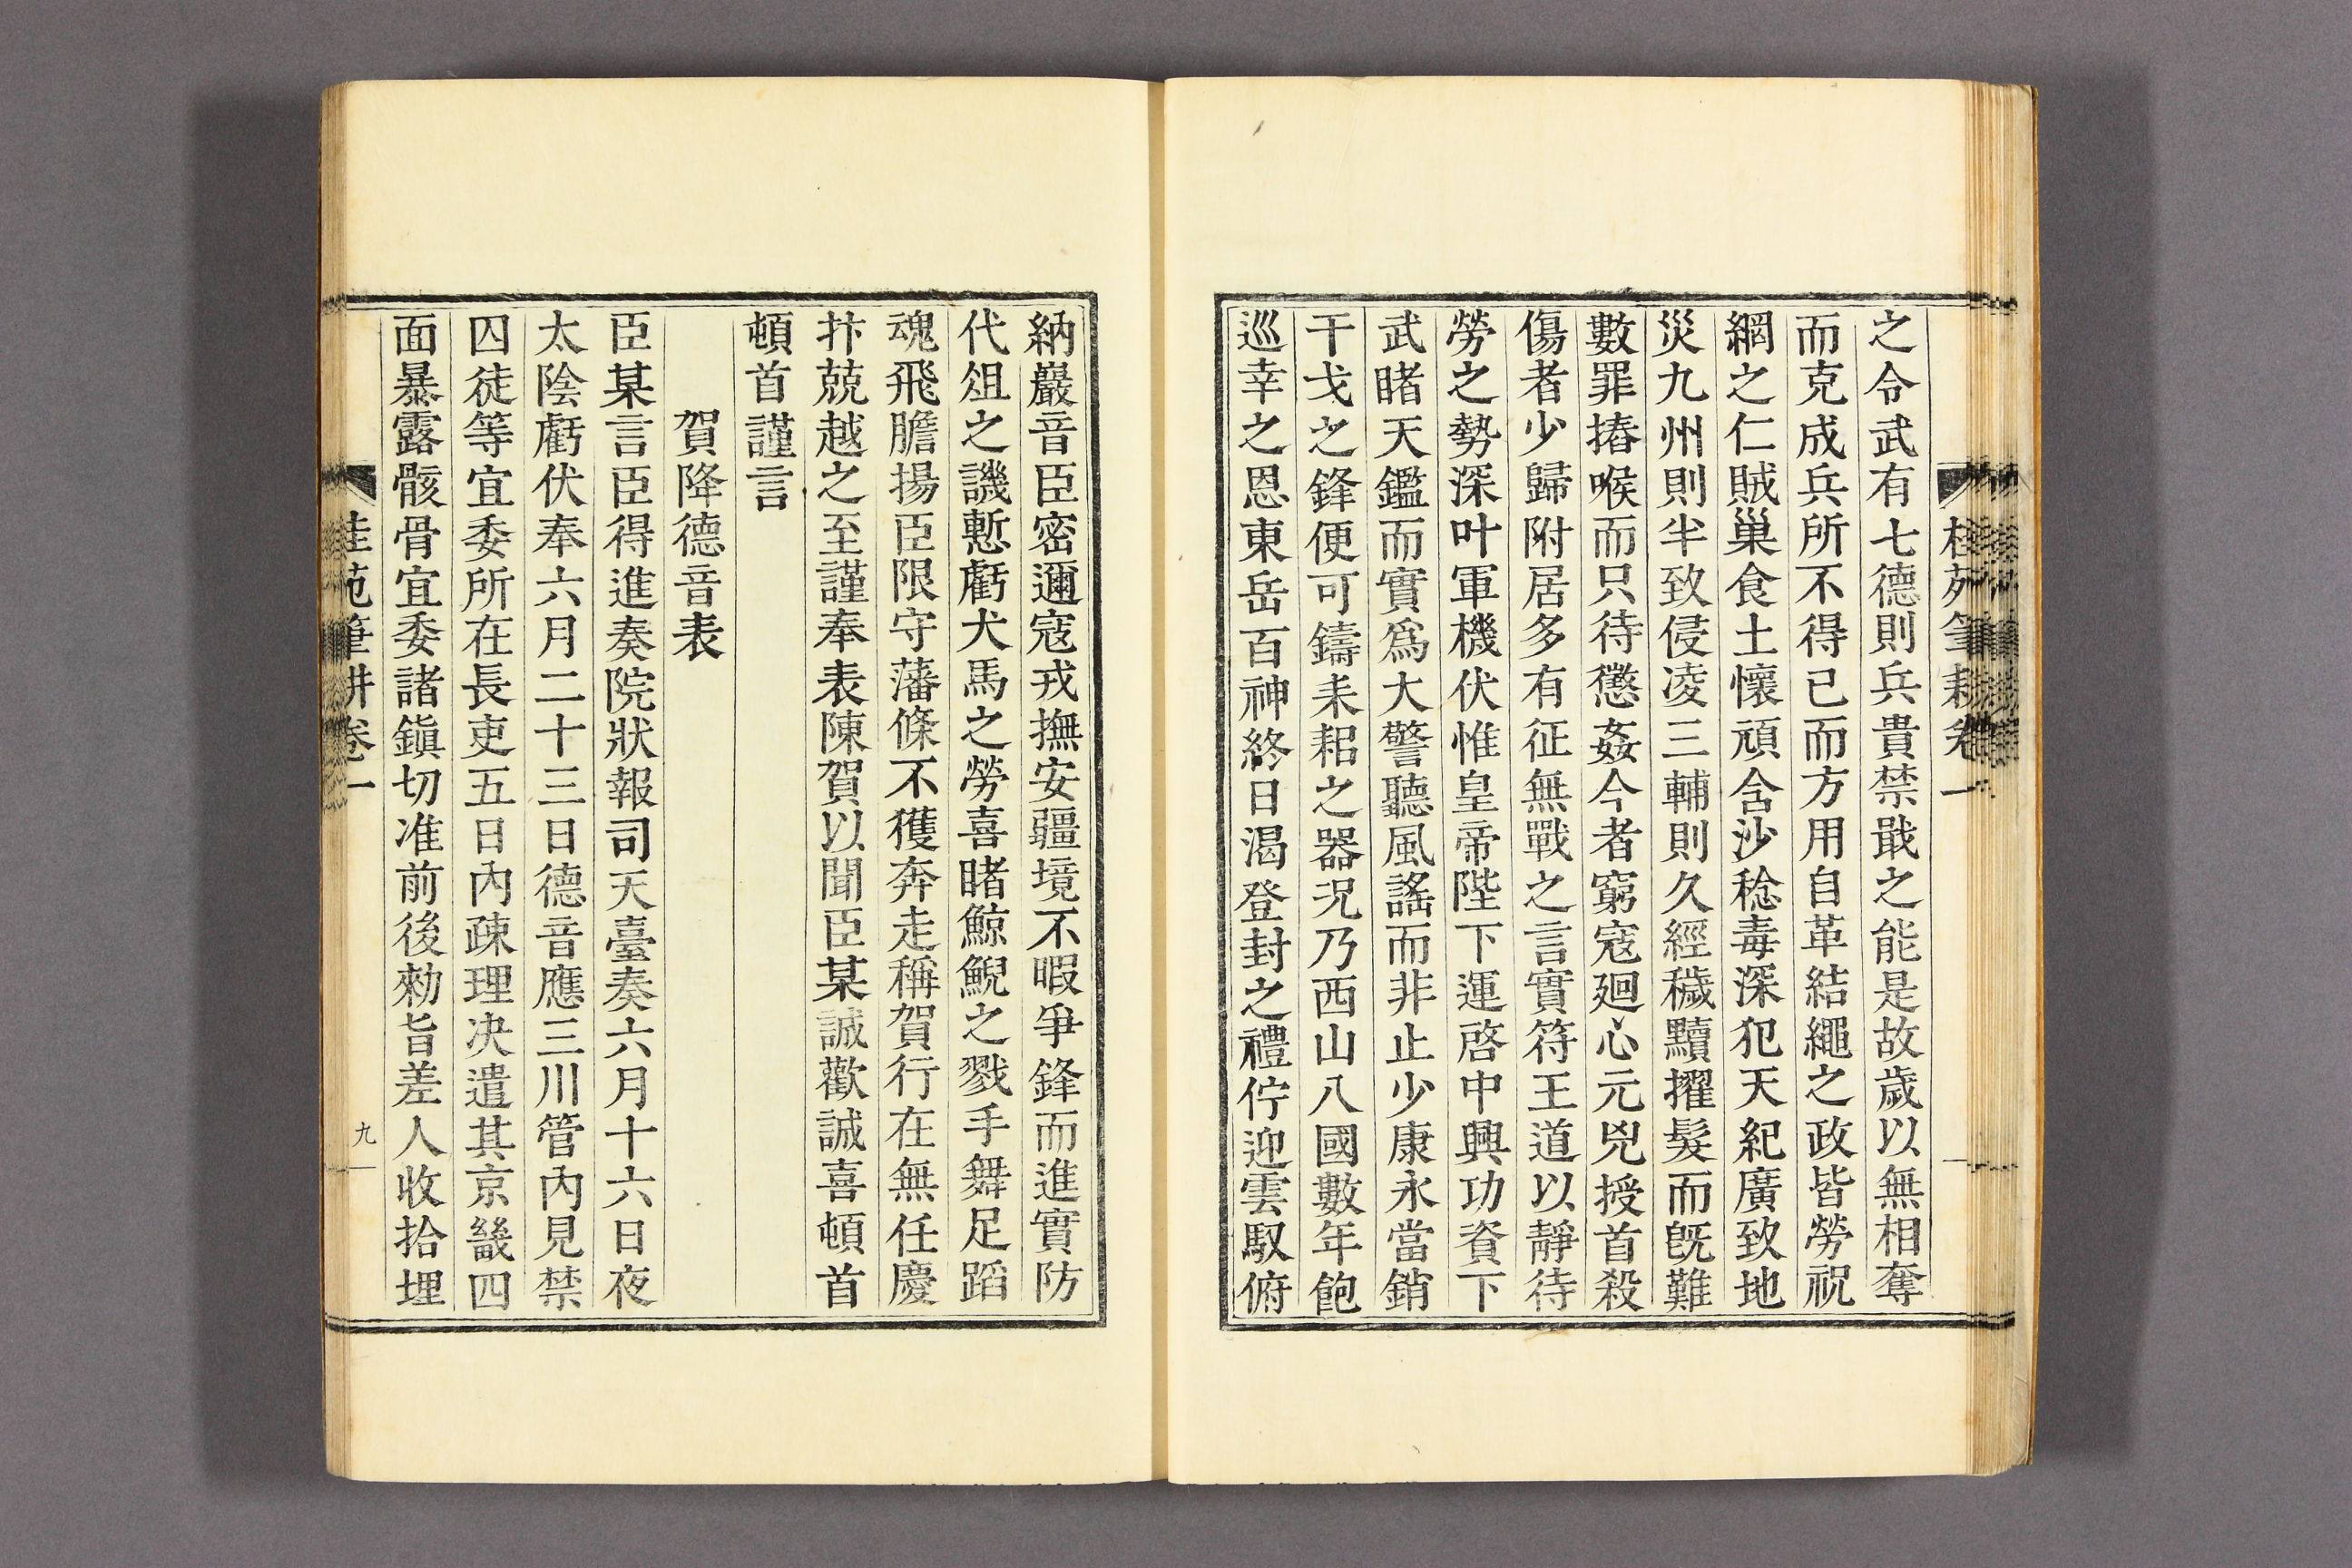 桂苑筆耕卷一
之令武有七德則兵貴禁戢之能是故歲以無相奪
而克成兵所不得已而方用自革結繩之政皆勞祝
網之仁賊巢食土懷頑含沙稔毒深犯天紀廣致地
災九州則半致侵凌三輔則久經穢黷擢髮而旣難
數罪摏喉而只待懲姦今者窮寇廻心元兇授首殺
傷者少歸附居多有征無戰之言實符王道以靜待
勞之勢深叶軍機伏惟皇帝陛下運啓中興功資下
武睹天鑑而實爲大警聽風謠而非止少康永當銷
干戈之鋒便可鑄耒耜之器況乃西山八國數年飽
巡幸之恩東岳百神終日渴登封之禮佇迎雲馭俯
納巖音臣密邇寇戎撫安疆境不暇爭鋒而進實防
代俎之譏慙虧犬馬之勞喜睹鯨鯢之戮手舞足蹈
魂飛膽揚臣限守藩條不獲奔走稱賀行在無任慶
抃兢越之至謹奉表陳賀以聞臣某誠歡誠喜頓首
頓首謹言
賀降德音表
臣某言臣得進奏院狀報司天臺奏六月十六日夜
太陰虧伏奉六月二十三日德音應三川管內見禁
囚徒等宜委所在長吏五日內疎理決遣其京畿四
面暴露骸骨宜委諸鎭切准前後勑旨差人收拾埋
桂苑筆耕卷一
九